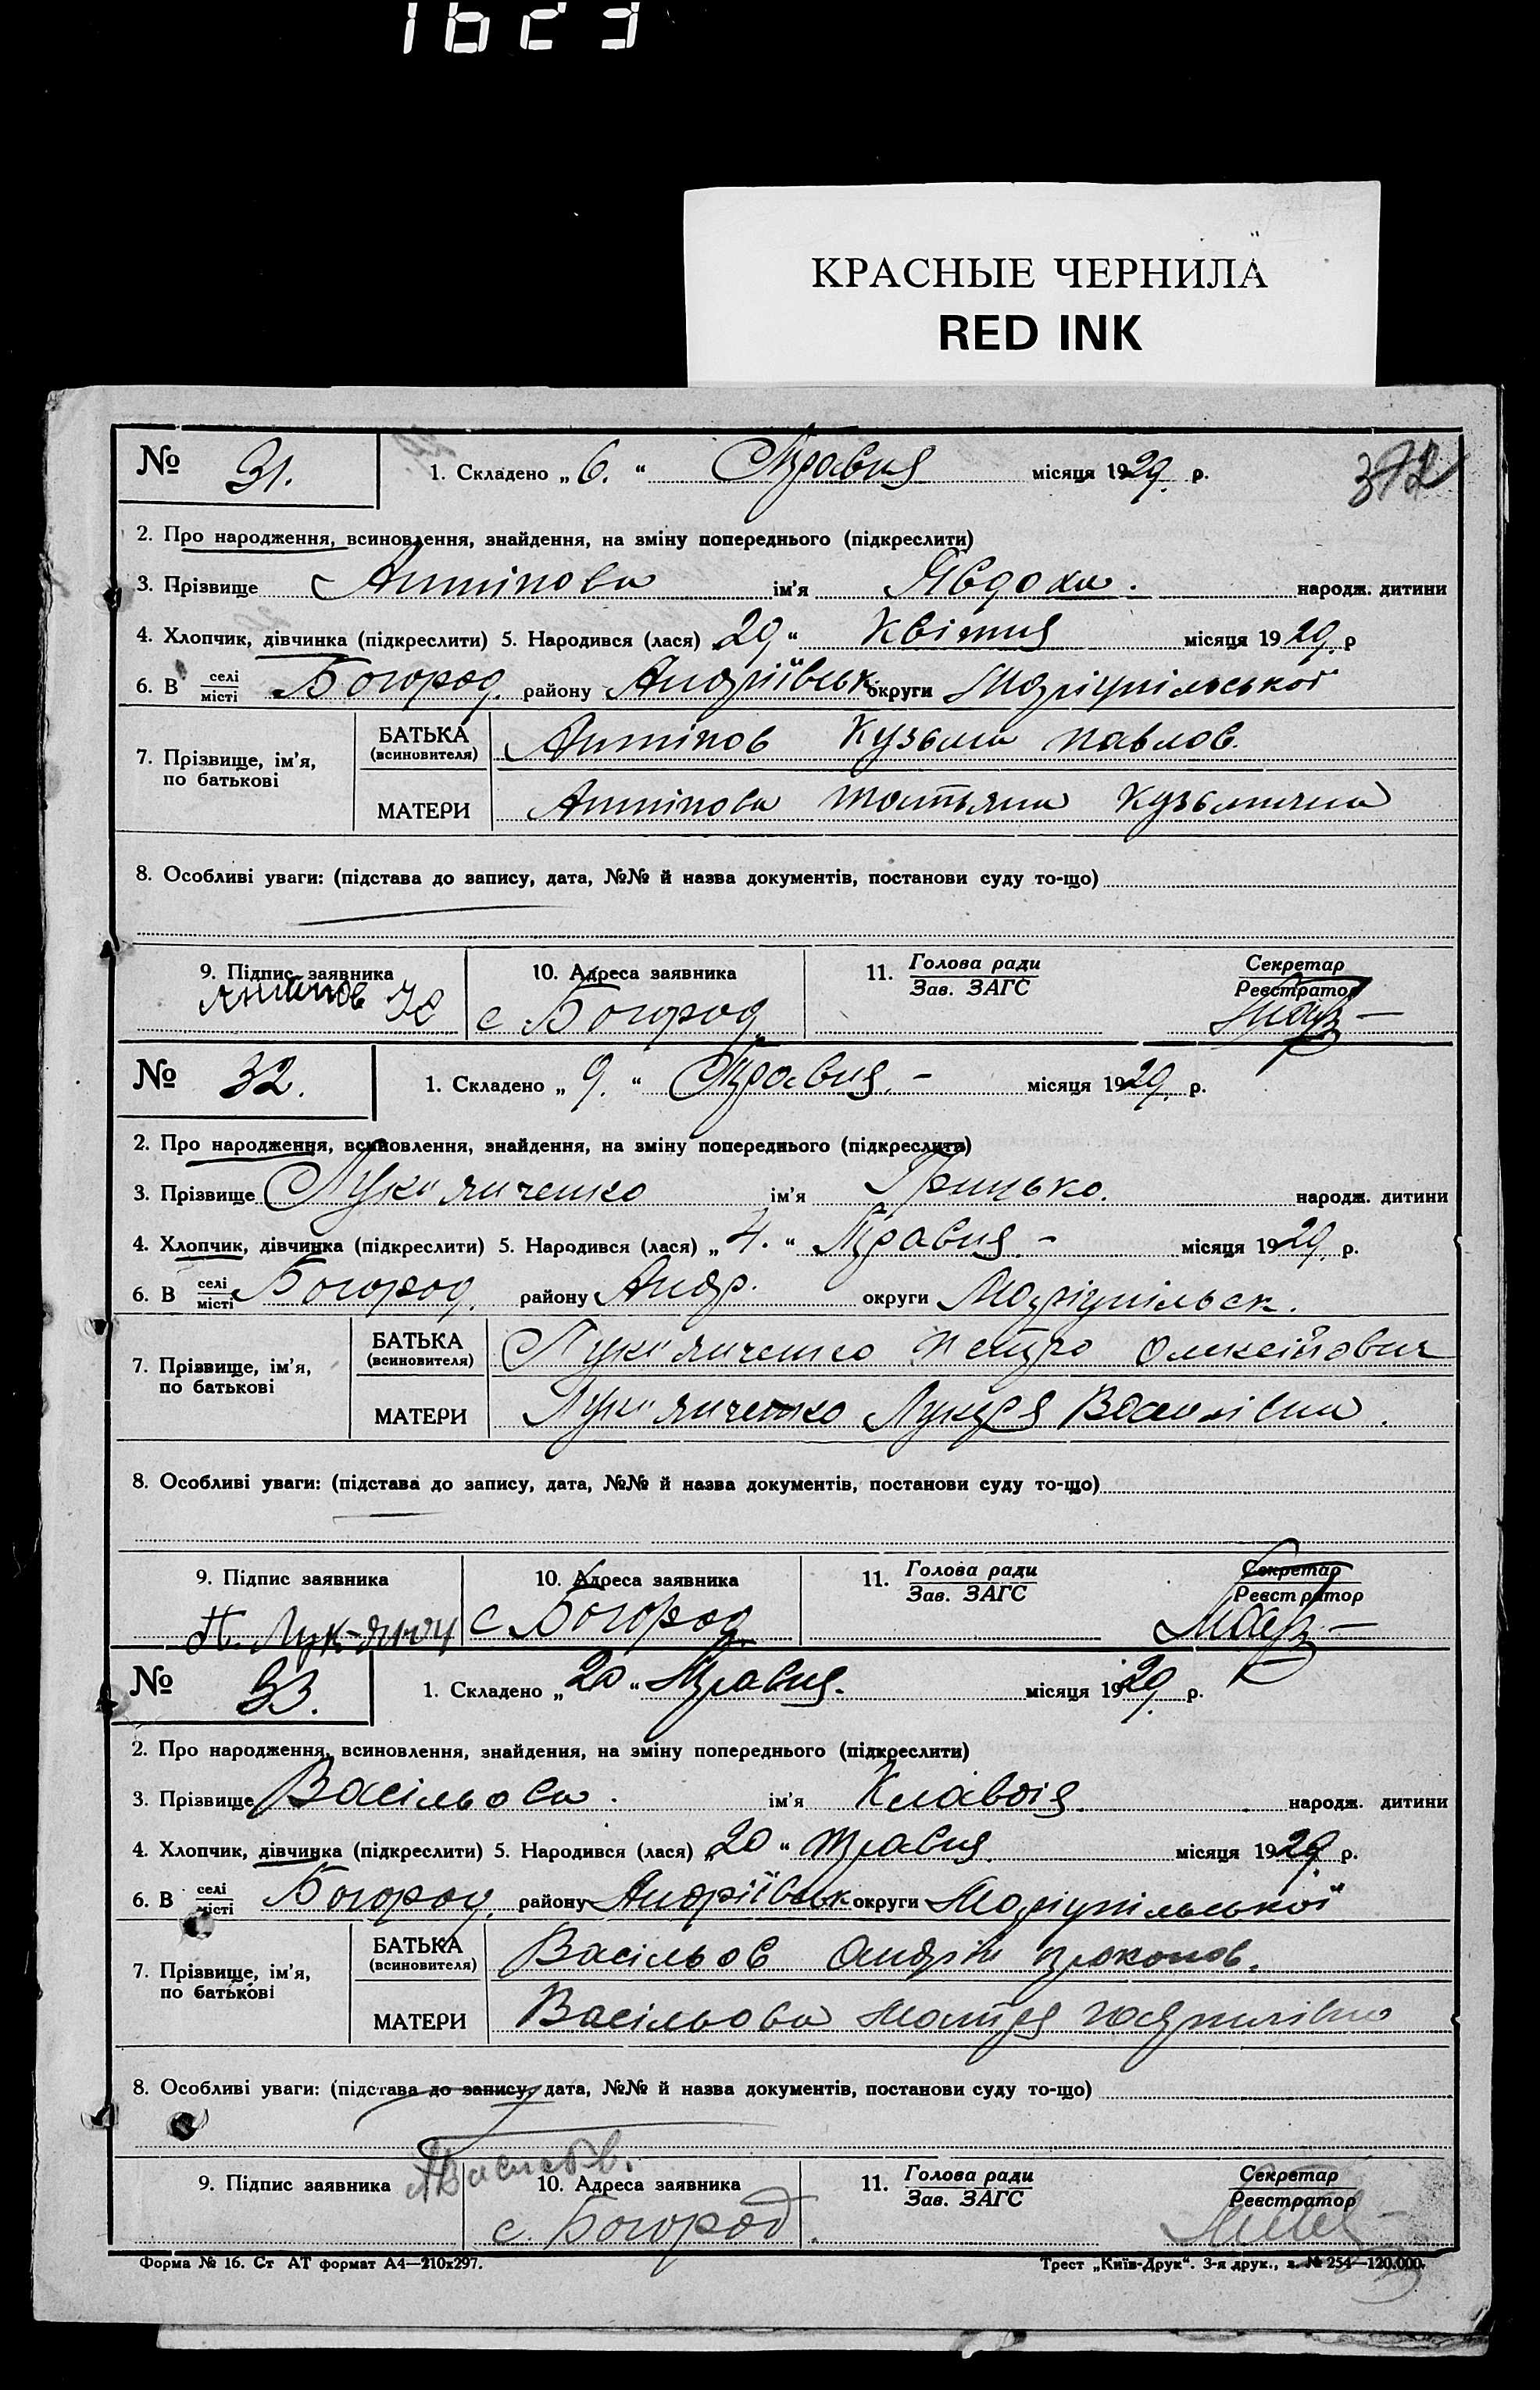 1623
КРАСНЫЕ ЧЕРНИЛА
RED INK
№ 31. 1. Складено „ 6. “ Травня місяця 1929. р. 372
2. Про народження, всиновлення, знайдення, на зміну попереднього (підкреслити)
3. Прізвище Антіпова ім’я Явдоха. народж. дитини
4. Хлопчик, дівчинка (підкреслити) 5. Народився (лася) „29“ Квітня місяця 1929. р
6. В селі місті Богород. району Андріївськ округи Маріупільської
7. Прізвище, ім’я, по батькові БАТЬКА (всиновителя) Антіпов Кузьма Павлов.
МАТЕРИ Антіпова Татьяна Кузьмична
8. Особливі уваги: (підстава до запису, дата, №№ й назва документів, постанови суду то-що)
9. Підпис заявника 10. Адреса заявника 11. Голова ради Зав. ЗАГС Секретар Реєстратор
Антипов с Богород.
№ 32. 1. Складено „ 9. “ Травня. – місяця 1929. р.
2. Про народження, всиновлення, знайдення, на зміну попереднього (підкреслити)
3. Прізвище Лук"янченко ім’я Грицько. народж. дитини
4. Хлопчик, дівчинка (підкреслити) 5. Народився (лася) „ 4. “ Травня. – місяця 1929. р.
6. В селі місті Богород. району Андр. округи Маріупільськ.
7. Прізвище, ім’я, по батькові БАТЬКА (всиновителя) Лук"янченко Петро Олексійович
МАТЕРИ Лук"янченко Лукеря Васілівна.
8. Особливі уваги: (підстава до запису, дата, №№ й назва документів, постанови суду то-що)
9. Підпис заявника 10. Адреса заявника 11. Голова ради Зав. ЗАГС Секретар Реєстратор
с Богород.
№ 33. 1. Складено „20“ Травня. місяця 1929. р.
2. Про народження, всиновлення, знайдення, на зміну попереднього (підкреслити)
3. Прізвище Васільова. ім’я Клавдія народж. дитини
4. Хлопчик, дівчинка (підкреслити) 5. Народився (лася) „20“ травня місяця 1929. р.
6. В селі місті Богород. району Андріївськ округи Маріупільської
7. Прізвище, ім’я, по батькові БАТЬКА (всиновителя) Васільов Андрій Прокопов.
МАТЕРИ Васільова Мотря Гаврилівна
8. Особливі уваги: (підстава до запису, дата, №№ й назва документів, постанови суду то-що)
9. Підпис заявника 10. Адреса заявника 11. Голова ради Зав. ЗАГС Секретар Реєстратор
с. Богород.
Форма № 16. Ст АТ формат А4—210х297. Трест „Київ-Друк“. 3-я друк., з. № 254—120.000.